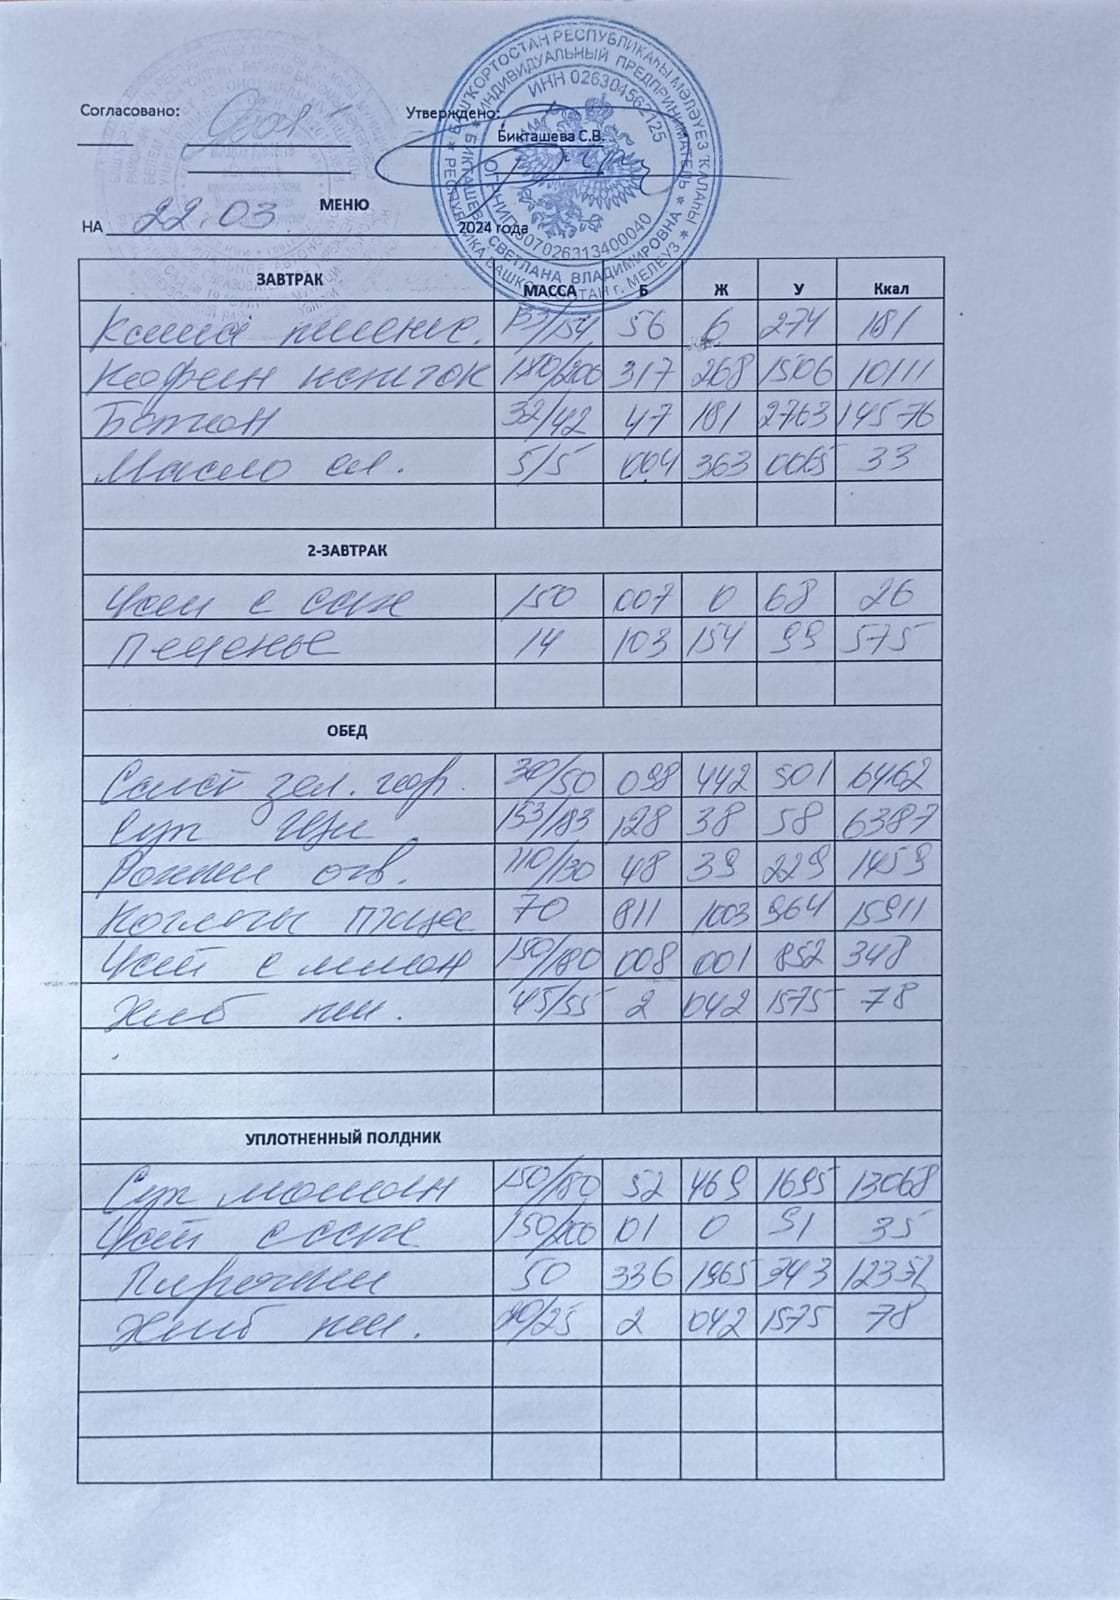 БАШҠОРТОСТАН РЕСПУБЛИКАҺЫ МӘЛӘҮЕЗ ҠАЛАҺЫ
ИНДИВИДУАЛЬНЫЙ ПРЕДПРИНИМАТЕЛЬ
ИНН 026304562125
СВЕТЛАНА ВЛАДИМИРОВНА
г. МЕЛЕУЗ
Согласовано: Утверждено:
Бикташева С.В.
МЕНЮ
НА 22.03. 2024 года
ЗАВТРАК МАССА Б Ж У Ккал
Каша пшенич. 154 56 6 274 181
Кофейн напиток 180/200 317 268 1506 10111
Батон 32/42 47 181 2763 14576
Масло сл. 5/5 004 363 0065 33
2-ЗАВТРАК
Чай с сах 150 007 0 68 26
Печенье 14 103 154 99 575
ОБЕД
Салат зел. гор. 30/50 098 442 501 6462
Суп Щи 153/183 128 38 58 6387
Рожки отв. 110/130 48 39 229 1459
Котлеты птица 70 811 1003 964 15911
Чай с лимон 150/180 008 001 852 348
Хлеб пш. 45/55 2 042 1575 78
УПЛОТНЕННЫЙ ПОЛДНИК
Суп молочн 150/180 52 469 1695 13068
Чай с сах 150/200 01 0 91 35
Пирожки 50 336 1965 343
Хлеб пш. 20/25 2 042 1575 78